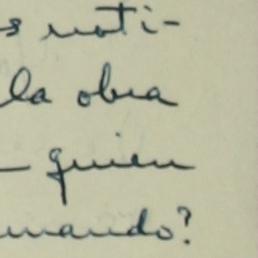 s noti-
la obra
- quien
mando?